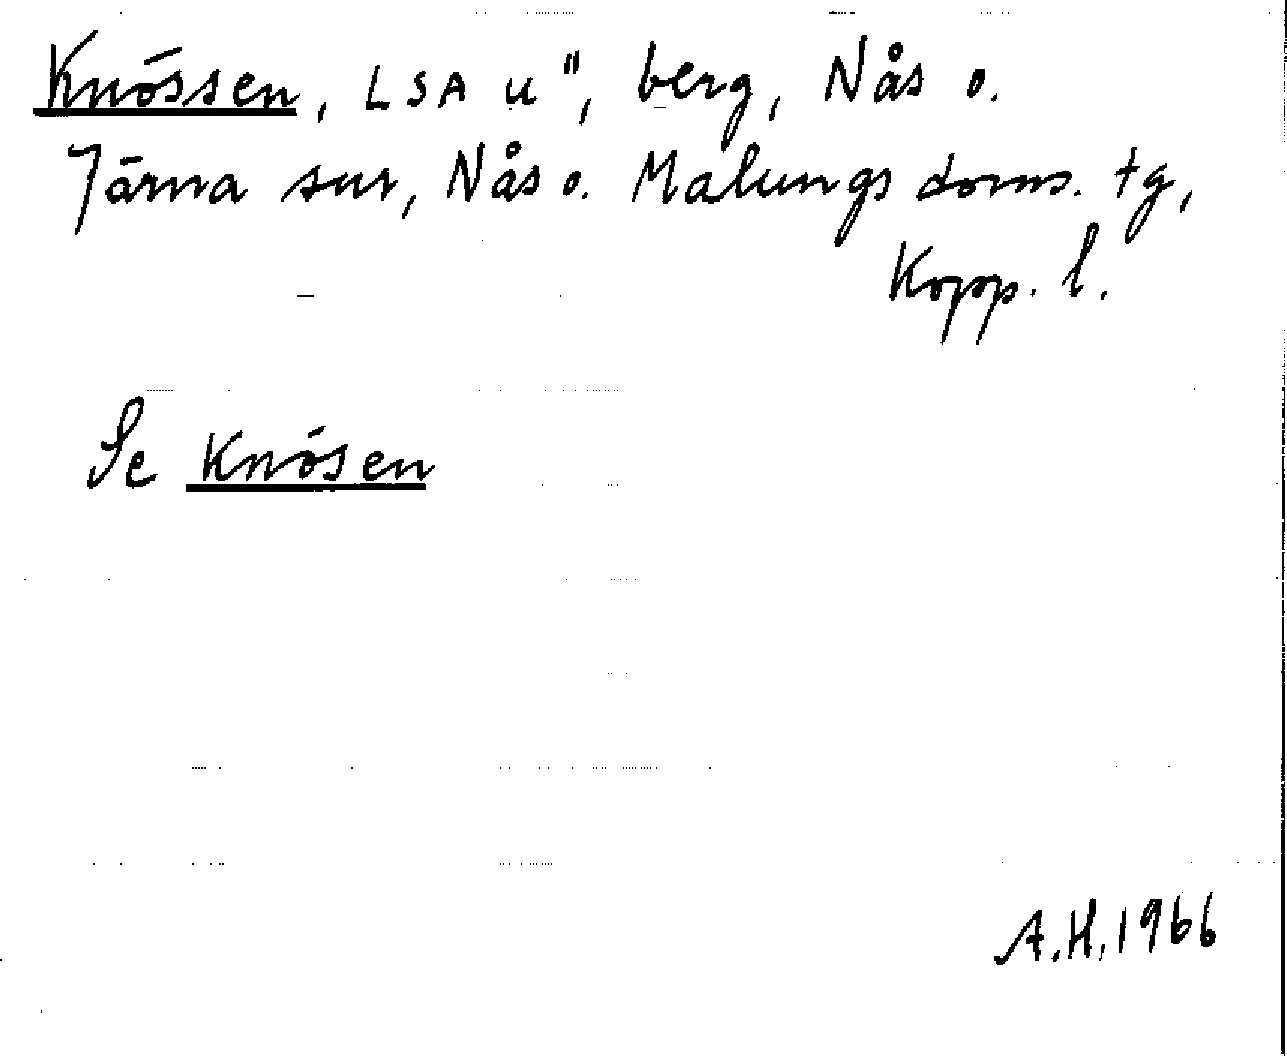 Knössen, LSA u", berg, Nås o.
Järna snr, Nås o. Malungs doms. tg,
Kopp. l.
Se Knösen
A.H. 1966